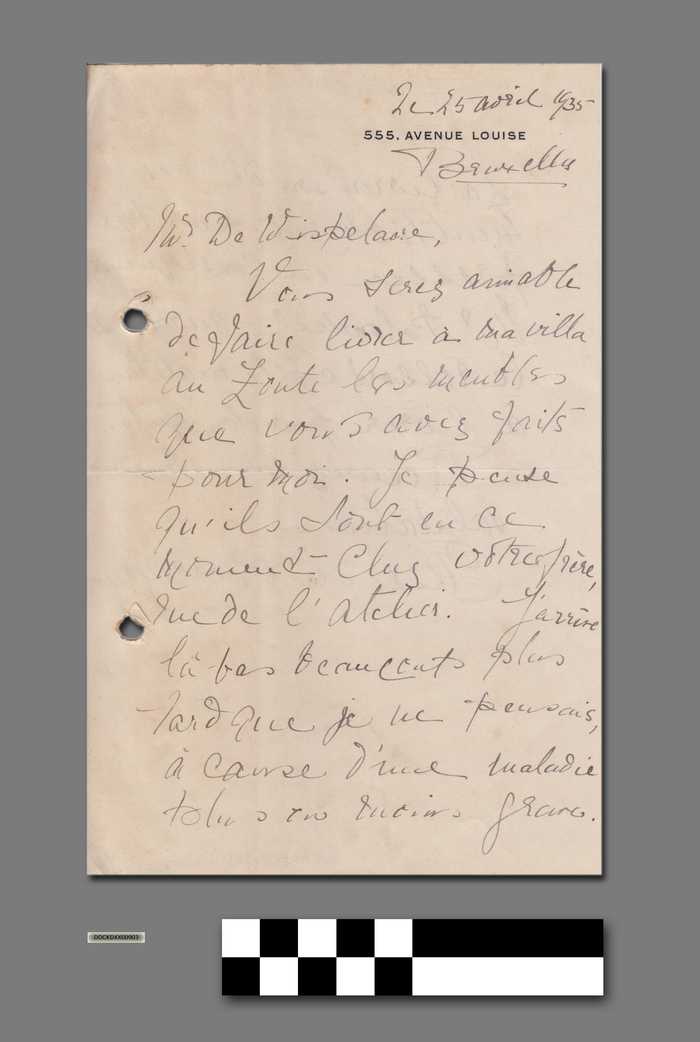 Le 25 avril 1935
555, AVENUE LOUISE
Bruxelles
Mr. De Wispelaere,
Vous serez aimable
de faire livrer à ma villa
au Zoute les meubles
que vous avez faits
pour moi. Je pense
qu'ils sont en ce
moment chez votre frère,
rue de l'atelier. J'arrive
là bas beaucoup plus
tard que je ne pensais,
à cause d'une maladie
plus ou moins grave.